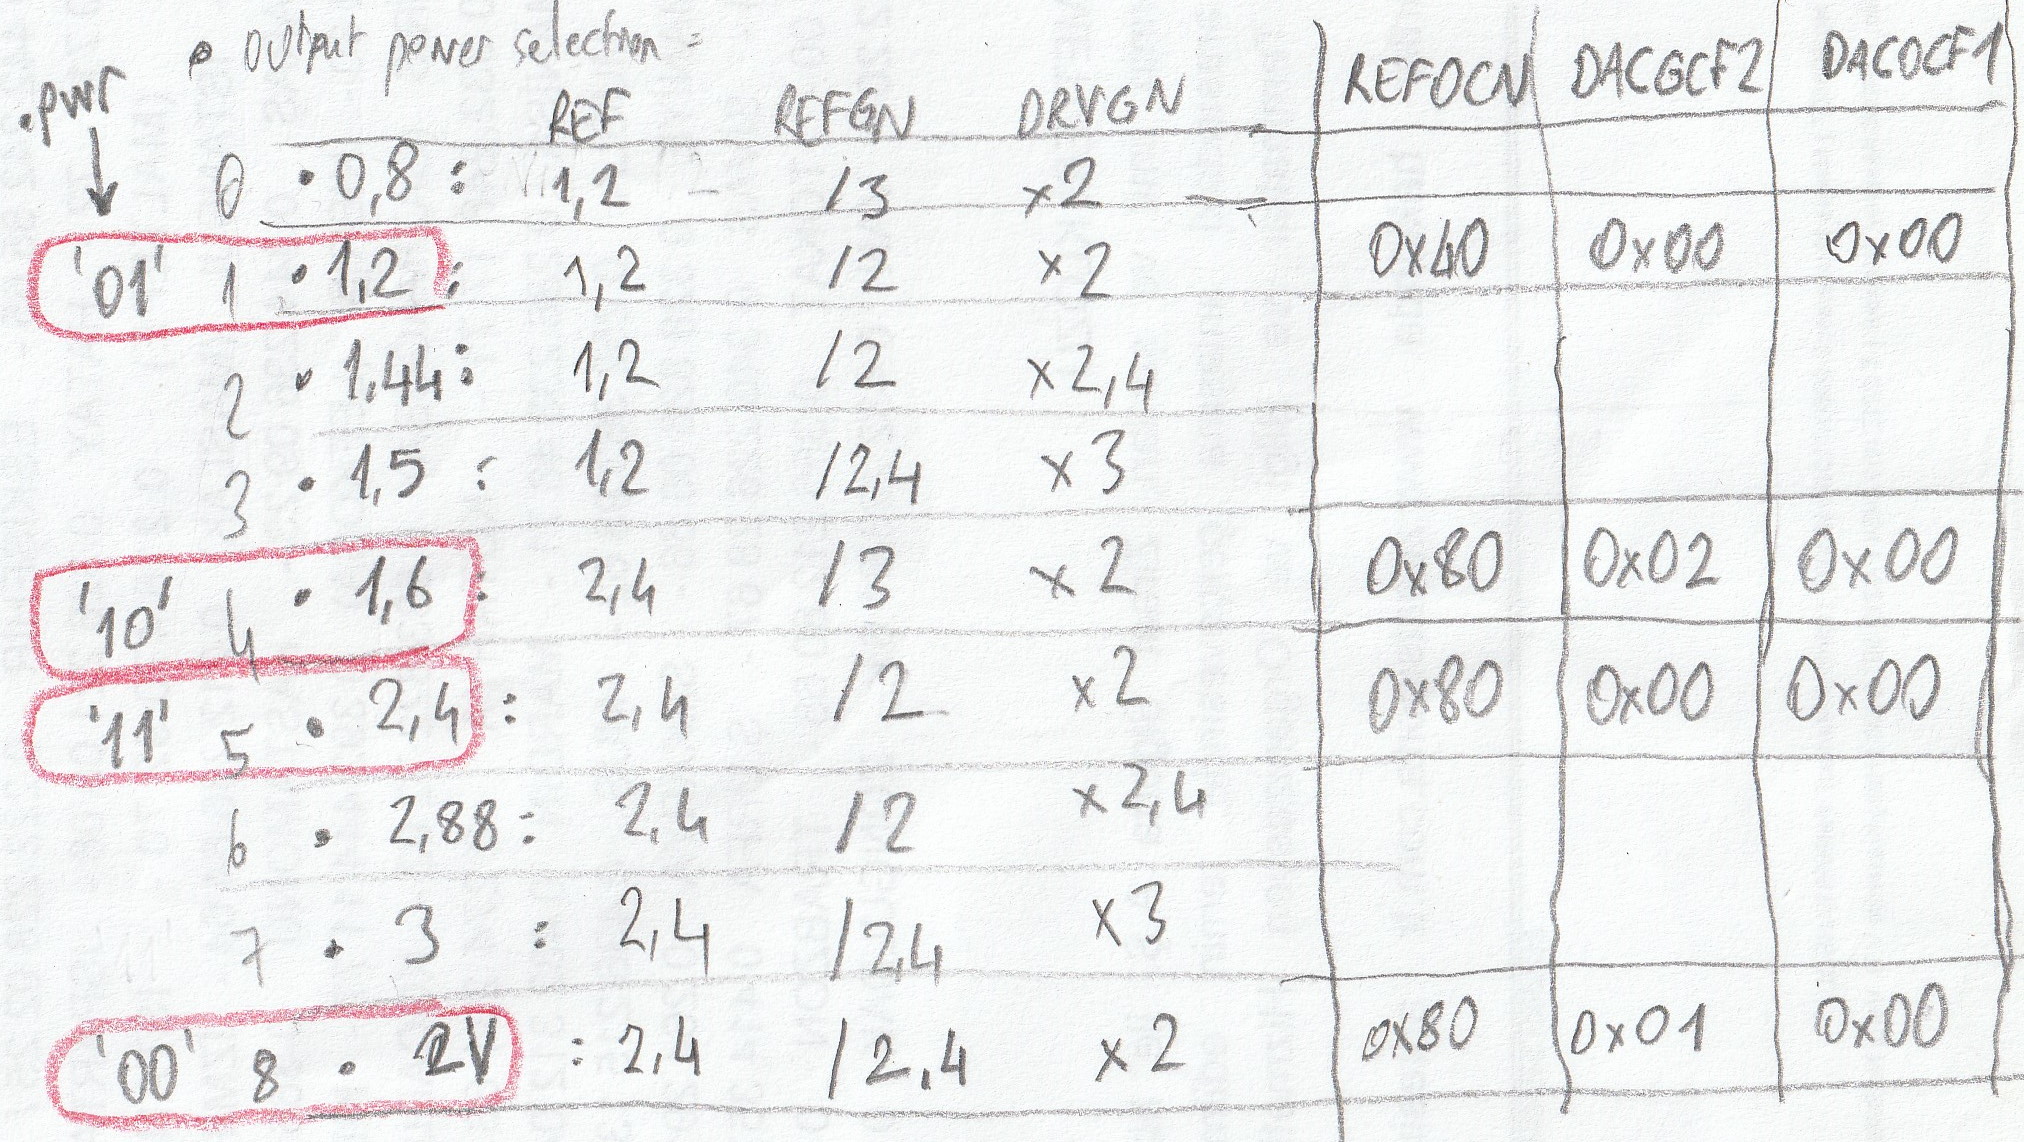 • output power selection =
.pwr REF REFGN DRVGN REFOCN DACGCF2 DACOCF1
0 • 0,8 : 1,2 /3 x2
'01' 1 • 1,2 : 1,2 /2 x2 0x40 0x00 0x00
2 • 1,44 : 1,2 /2 x2,4
3 • 1,5 : 1,2 /2,4 x3
'10' 4 • 1,6 : 2,4 /3 x2 0x80 0x02 0x00
'11' 5 • 2,4 : 2,4 /2 x2 0x80 0x00 0x00
6 • 2,88 : 2,4 /2 x2,4
7 • 3 : 2,4 /2,4 x3
'00' 8 • 2V : 2,4 /2,4 x2 0x80 0x01 0x00